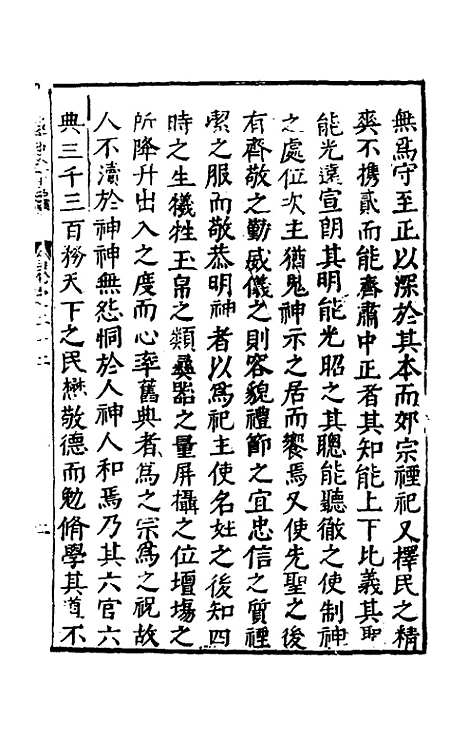 無爲守至正以深於其本而郊宗禋祀又擇民之精
爽不携貳而能齊肅中正者其知能上下比義其聖
能光遠宣朗其明能光昭之其聰能聽徹之使制神
之處位次主猶鬼神示之居而饗焉又使先聖之後
有齊敬之勤威儀之則容貌禮節之宜忠信之質禋
潔之服而敬恭明神者以爲祀主使名姓之後知四
時之生犧牲玉帛之類彞器之量屏攝之位壇場之
所降升出入之度而心率舊典者爲之宗爲之祝故
人不瀆於神神無怨恫於人神人和焉乃其六官六
典三千三百務天下之民懋敬德而勉脩學其道不